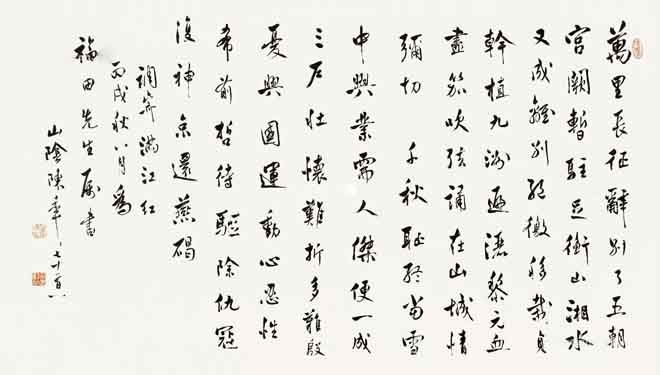 萬里長征辭別了五朝
宮闕暫駐足衡山湘水
又成離別絕徼移栽貞
幹植九洲遍灑黎元血
盡笳吹弦誦在山城情
彌切 千秋恥終當雪
中興業需人傑便一成
三戶壯懷難折多難殷
憂興國運動心忍性
希前哲待驅除仇寇
復神京還燕碣
調寄滿江紅
丙戌秋八月為
福田先生屬書
山陰陳年